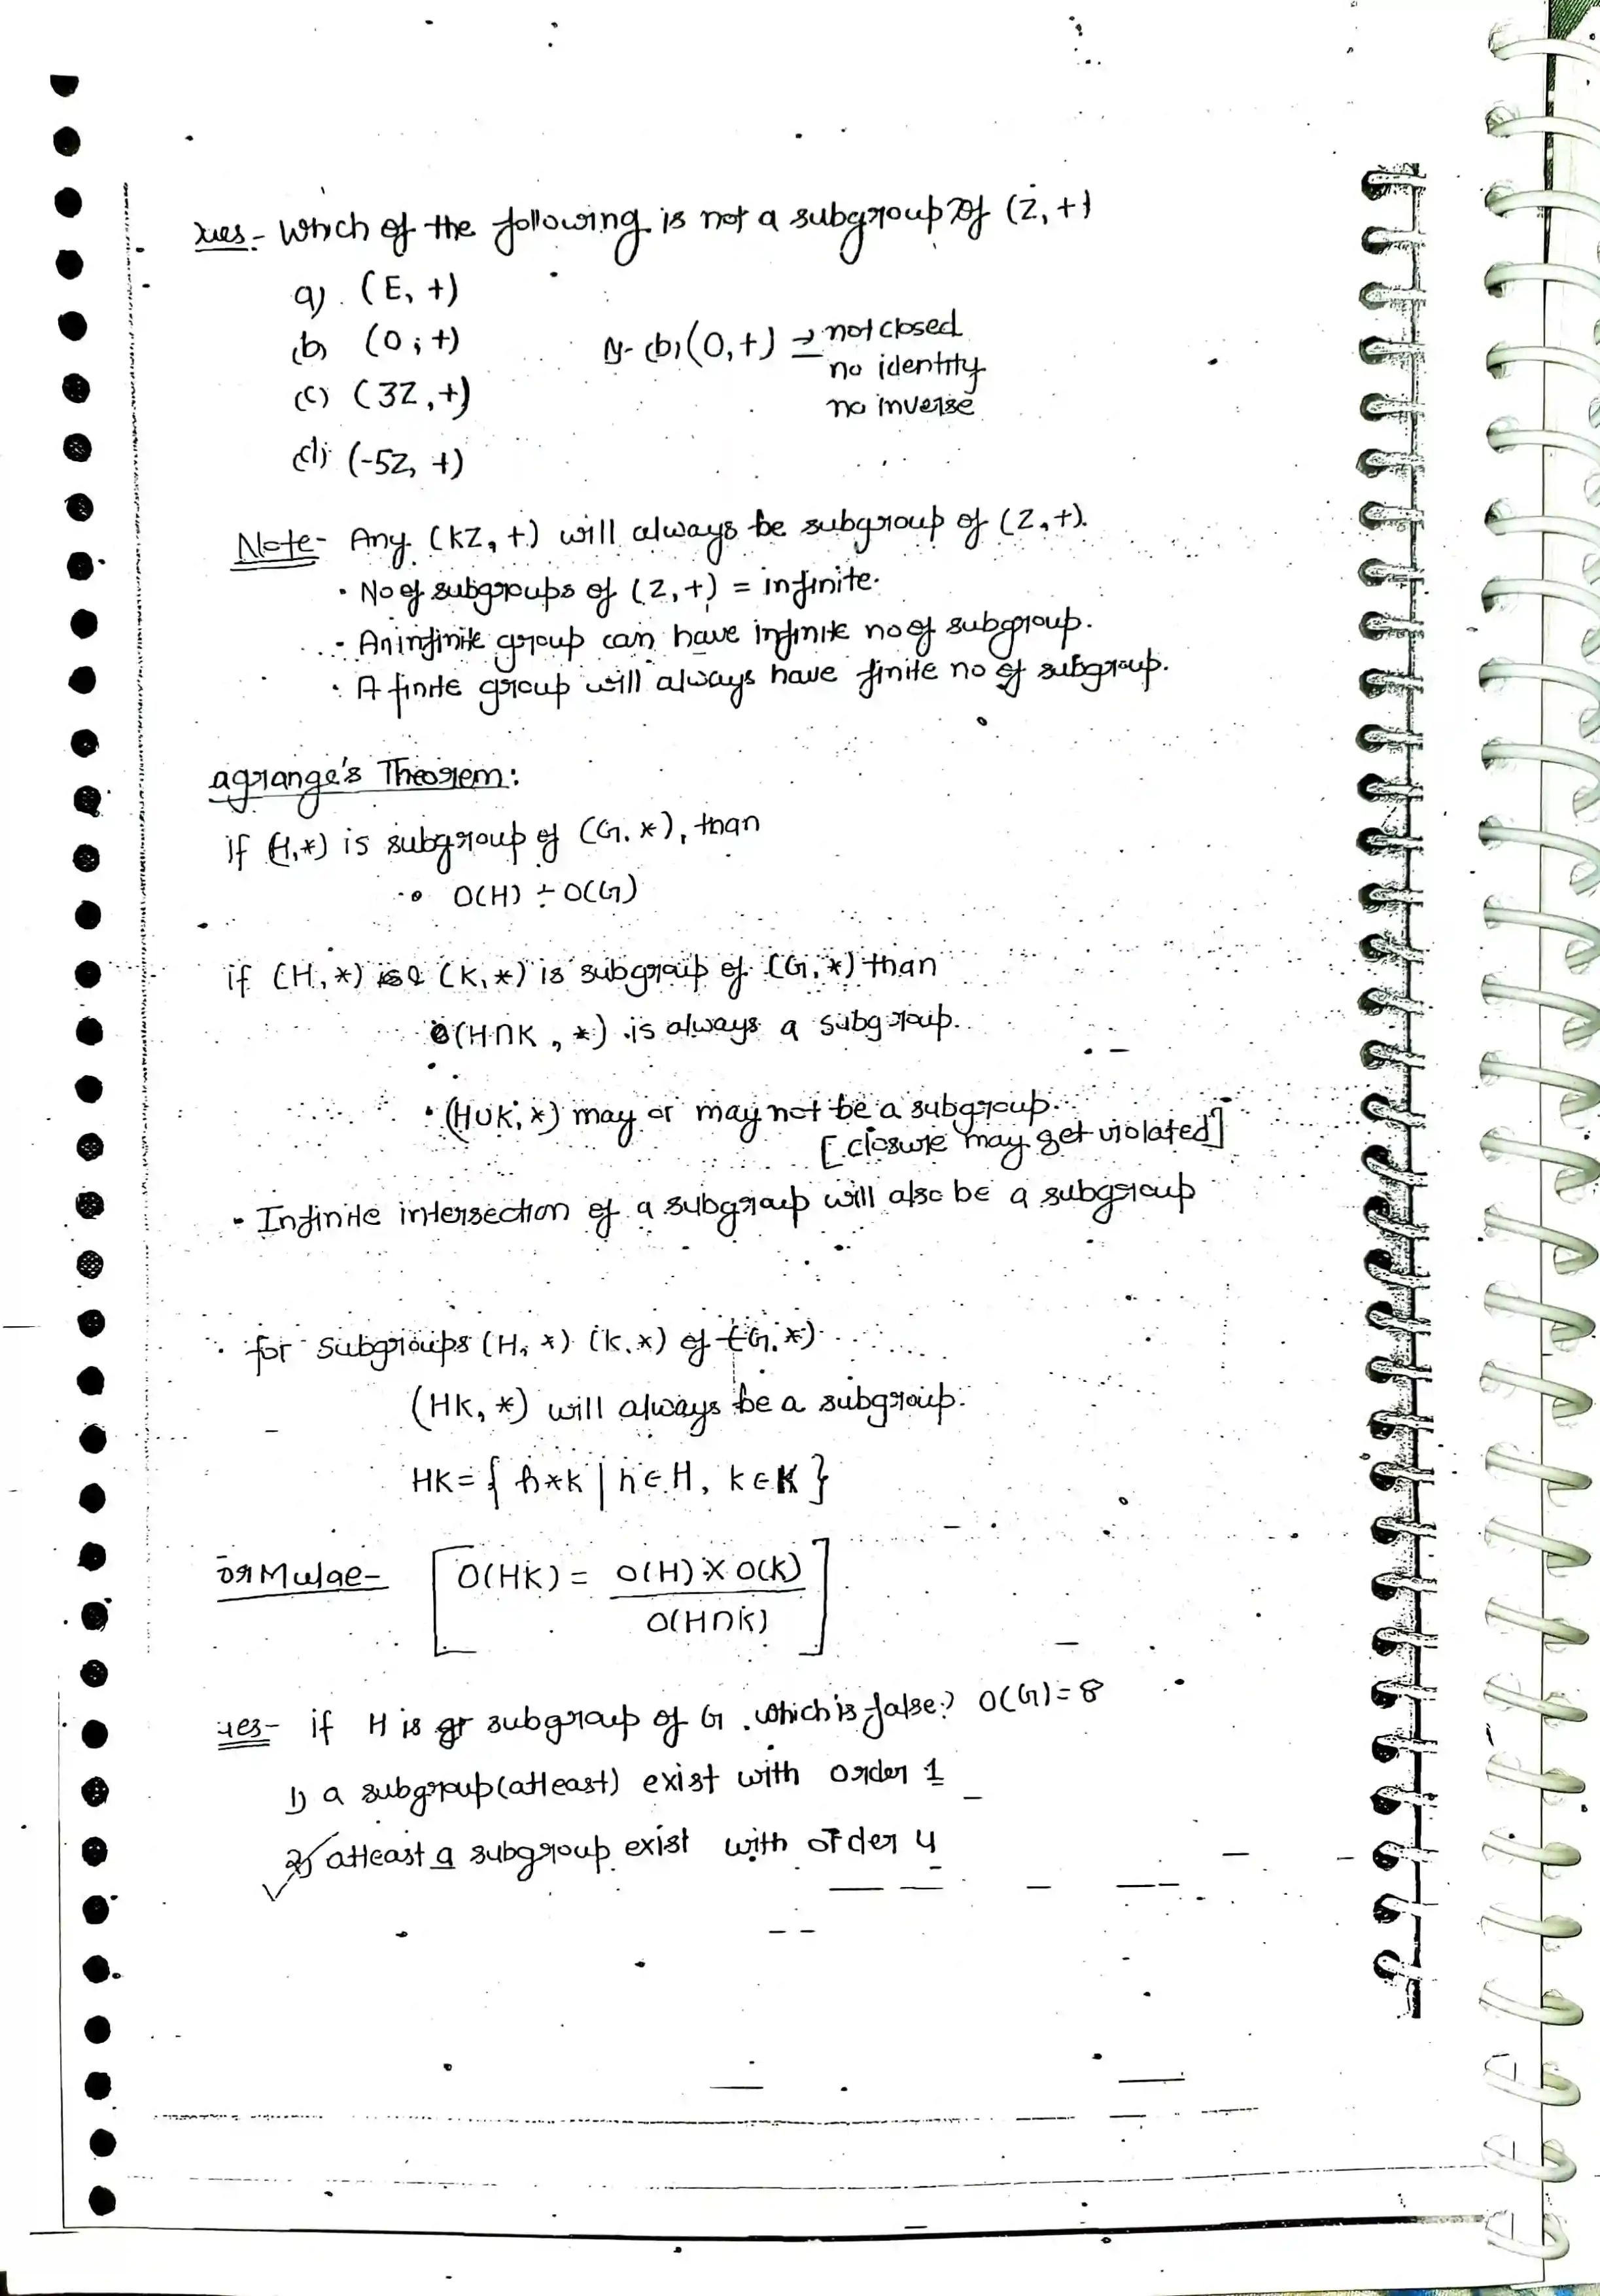 ues:- Which of the following is not a subgroup of (Z, +)
a) (E, +)
(b) (O, +)
(b) (O, +) → not closed
no identity
no inverse
(c) (3Z, +)
(d) (-5Z, +)
Note- Any (kZ, +) will always be subgroup of (Z, +).
• No of subgroups of (Z, +) = infinite.
• An infinite group can have infinite no of subgroup.
• A finite group will always have finite no of subgroup.
agrange's Theorem:
if (H, *) is subgroup of (G, *), than
• O(H) ÷ O(G)
if (H, *) & (K, *) is subgroup of (G, *) than
(H∩K, *) is always a subgroup.
• (H∪K, *) may or may not be a subgroup.
[closure may get violated]
• Infinite intersection of a subgroup will also be a subgroup
• for subgroups (H, *) (K, *) of (G, *)
(HK, *) will always be a subgroup.
HK = { h*k | h∈H, k∈K }
ormulae- [ O(HK) = O(H) × O(K)
O(H∩K) ]
ues- if H is subgroup of G. which is false? O(G) = 8
1) a subgroup (atleast) exist with order 1
2) atleast a subgroup exist with order 4